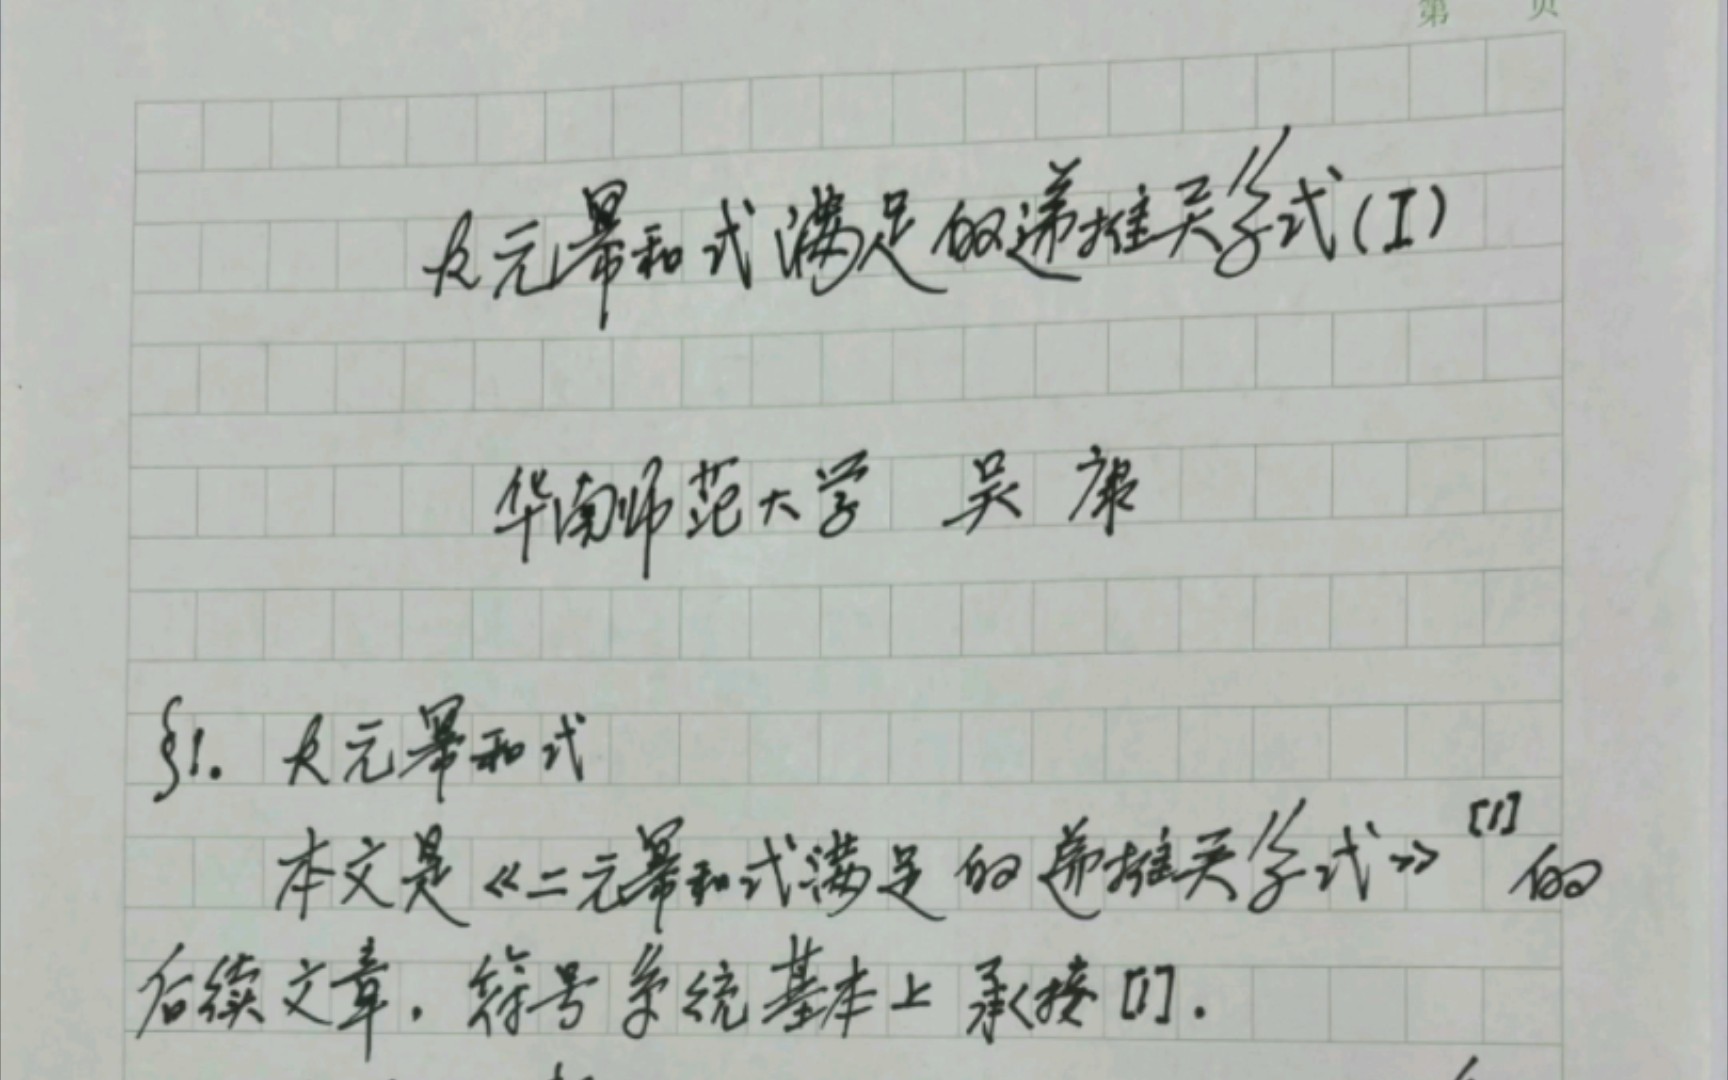 第 页
k元幂和式满足的递推关系式(I)
华南师范大学 吴康
§1. k元幂和式
本文是《二元幂和式满足的递推关系式》[1]的
后续文章. 符号系统基本上承接[1].